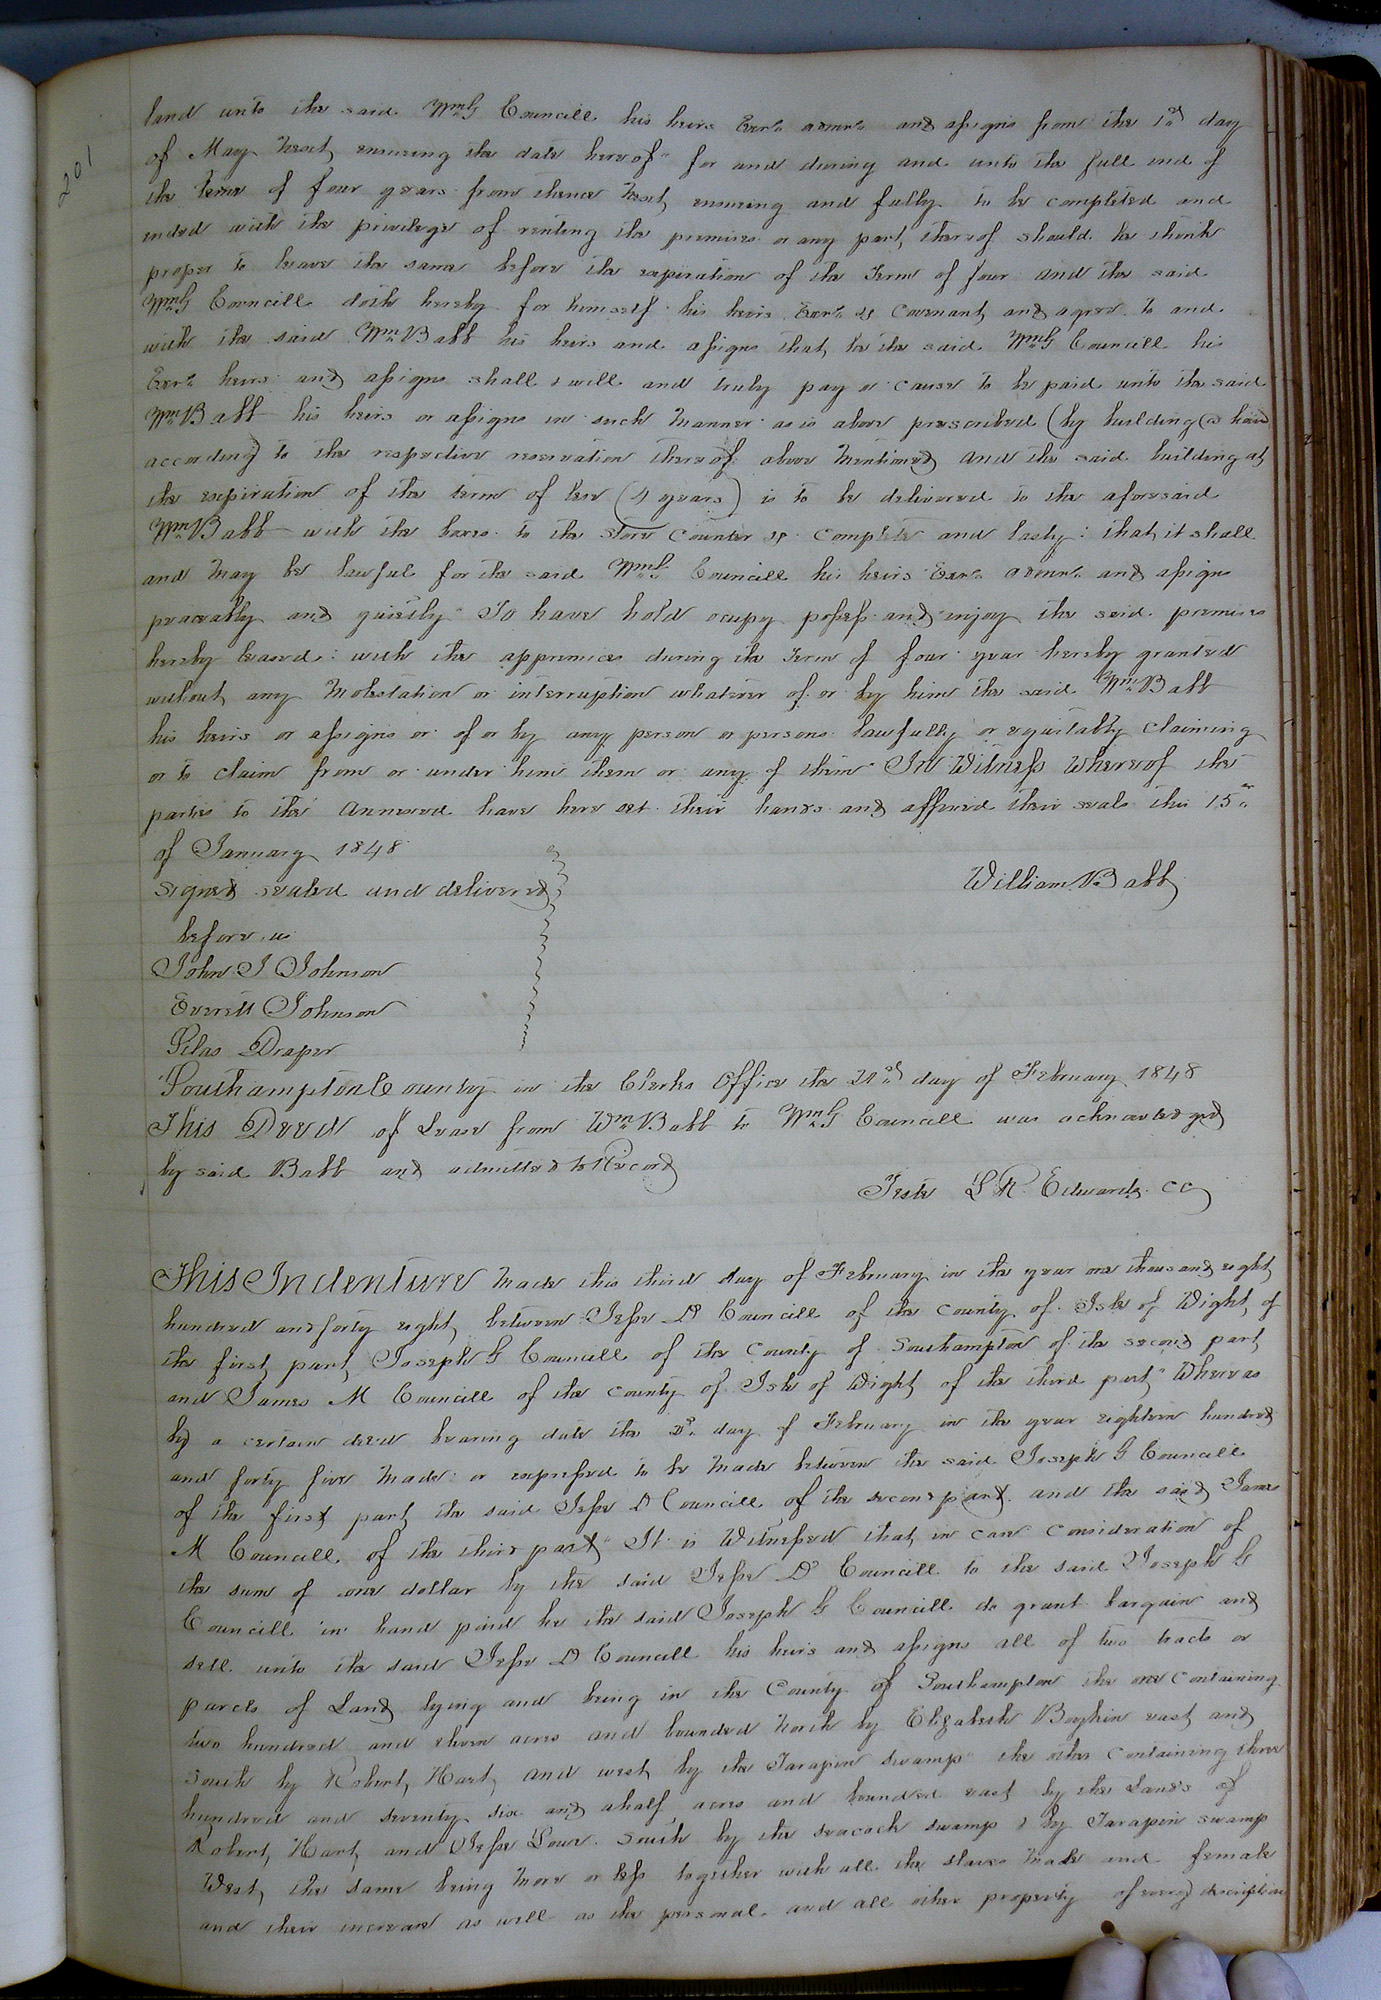 201
land unto the said Wm G Councill his heirs Exrs admrs and assigns from the 1st day
of May next ensuing the date hereof for and during and unto the full end of
the term of four years from thence next ensuing and fully to be completed and
ended with the privilege of renting the premises or any part thereof should he think
proper to leave the same before the expiration of the Term of four and the said
Wm G Councill doth hereby for himself his heirs Exrs &c Covenant and agree to and
with the said Wm B Babb his heirs and assigns that he the said Wm G Councill his
Exrs heirs and assigns shall & will and truly pay or cause to be paid unto the said
Wm B Babb his heirs or assigns in such manner as is above prescribed (by building a
according to the respective reservation thereof above mentioned and the said building at
the expiration of the term of lese (4 years) is to be delivered to the aforesaid
Wm B Babb with the boxes to the store counter &c complete and lasty: that it shall
and may be lawful for the said Wm G Councill his heirs Exrs admrs and assigns
peaceably and quietly To have hold ocupy possess and enjoy the said premises
hereby leased: with the appremices during the Term of four year hereby granted
without any molestation or interruption whatever of or by him the said Wm B Babb
his heirs or assigns or of or by any person or persons lawfully or equitably claiming
or to claim from or under him them or any of them In Witness whereof the
parties to the annexed have here set their hands and affixed their seals this 15th
of January 1848
signed sealed and delivered
William B Babb
before us
John J Johnson
Everett Johnson
Silas Draper
Southampton County in the Clerks Office the 21st day of February 1848
This Deed of Lease from Wm B Babb to Wm G Councill was acknowledged
by said Babb and admitted to Record
Teste L R Edwards CC
This Indenture made this third day of February in the year one thousand eight
hundred and forty eight between Jesse D Councill of the County of Isle of Wight of
the first part Joseph G Councill of the County of Southampton of the second part
and James M Councill of the County of Isle of Wight of the third part Whereas
by a certain deed bearing date the day of February in the year eighteen hundred
and forty five made or expressed to be made between the said Joseph G Councill
of the first part the said Jesse D Councill of the second part and the said James
M Councill of the third part It is Witnessed that in consideration of
the sum of one dollar by the said Jesse D Councill to the said Joseph G
Councill in hand paid he the said Joseph G Councill do grant bargain and
sell unto the said Jesse D Councill his heirs and assigns all of two tracts or
parcls of Land lying and being in the County of Southampton the one containing
two hundred and eleven acres and bounded North by Elizabeth Boykin east and
South by Robert Hart and west by the Tarapin swamp the other containing three
hundred and seventy six and a half acres and bounded east by the Lands of
Robert Hart and Jesse South by the seacock swamp & by Tarapin swamp
West, the same being more or less together with all the slaves male and female
and their increase as well as the personal and all other property of every description